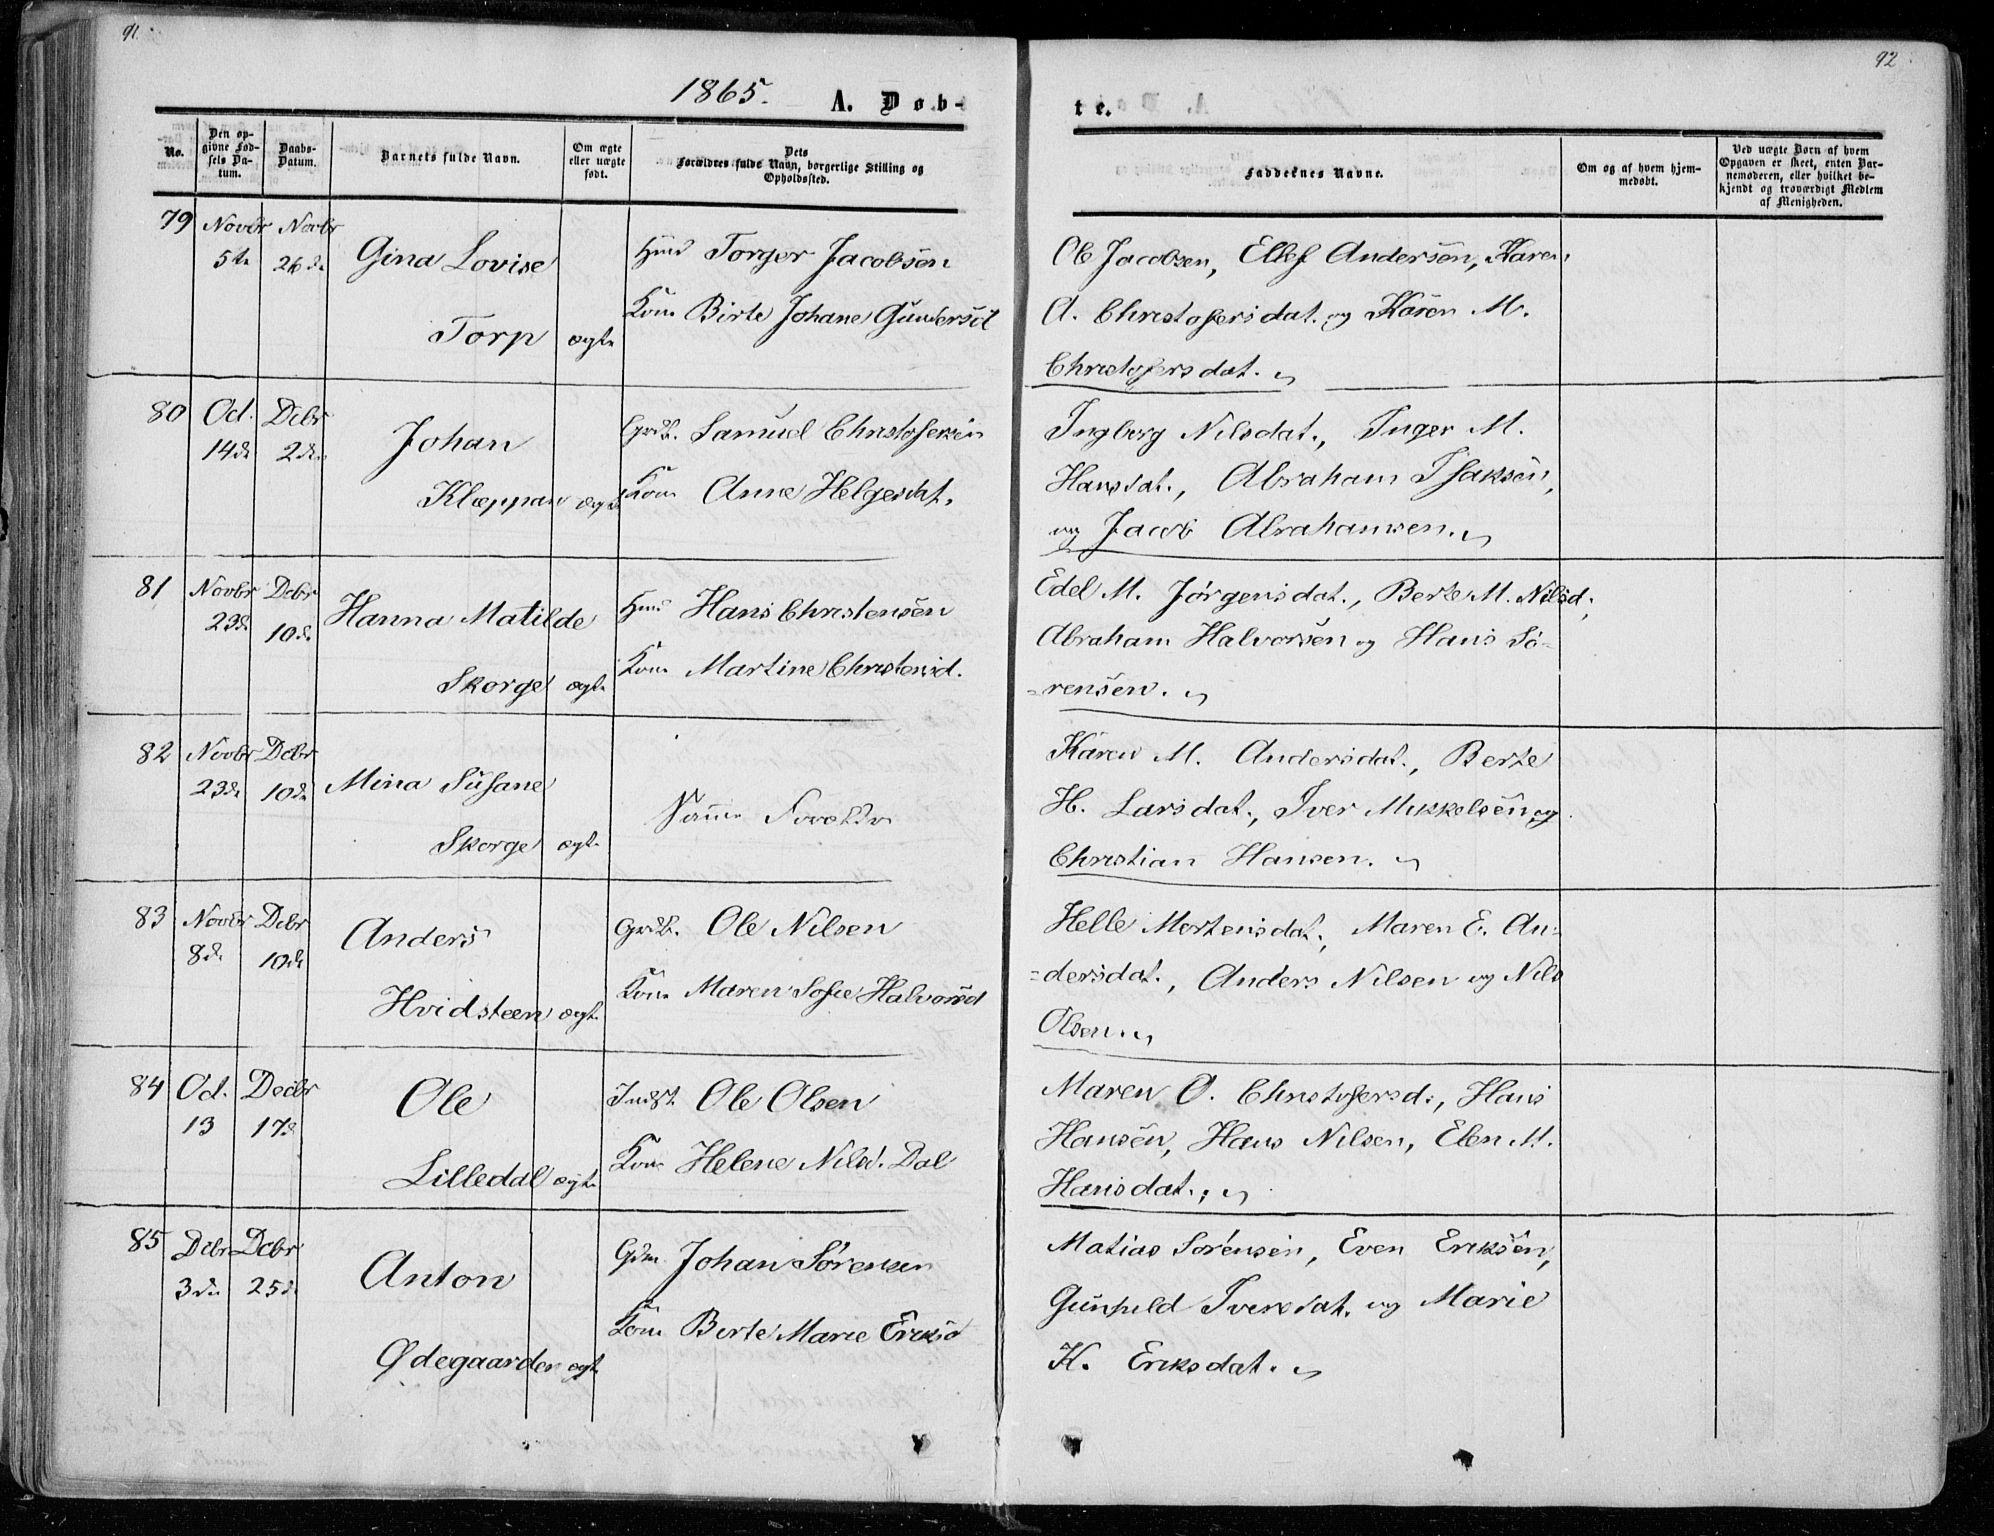 91.
92
1865. A. Døb-
te.
No.
Den opgivne Fødsels Datum.
Daabs-Datum.
Barnets fulde Navn.
Om ægte eller uægte født.
Dets Forældres fulde Navn, borgerlige Stilling og Opholdssted.
Faddernes Navne.
Om og af hvem hjemmedøbt.
Ved uægte Børn af hvem Opgaven er skeet, enten Barnemoderen, eller hvilket bekjendt og troværdigt Medlem af Menigheden.
79 Novbr Novbr
5te 26de Gina Lovise Hmd Torger Jacobsen
Torp ægte Kone Birte Johane Gundersd
Ole Jacobsen, Ellef Andersen, Karen
A. Christofersdat. og Karen M.
Christofersdat.
80 Oct. Decbr
14de 2de Johan Grdb. Samuel Christofersen
Klæppan ægte Kone Anne Helgesdat.
Ingborg Nilsdat., Inger M.
Hansdat., Abraham Isaksen,
og Jacob Abrahamsen.
81 Novbr Debr
23de 10de Hanna Matilde Hmd Hans Christensen
Skorge ægte Kone Martine Christensd.
Edel M. Jørgensdat., Berte M. Nilsd.,
Abraham Halvorsen og Hans Sø-
rensen.
82 Novbr Debr
23de 10de Mina Susane
Skorge ægte Samme Forældre
Karen M. Andersdat., Berte
H. Larsdat., Iver Mikkelsen og
Christian Hansen.
83 Novbr Debr
8de 10de Anders Grdb. Ole Nilsen
Hvidsteen ægte Kone Maren Sofie Halvorsd
Helle Mortensdat., Maren E. An-
dersdat., Anders Nilsen og Nils
Olsen.
84 Oct. Decbr
13 17de Ole Indst. Ole Olsen
Lilledal ægte Kone Helene Nilsd. Dal
Maren O. Christofersd., Hans
Hansen, Hans Nilsen, Elen M.
Hansdat.
85 Debr Debr
3die 25de Anton Gdm. Johan Sørensen
Ødegaarden ægte Kone Berte Marie Eriksd
Matias Sørensen, Even Eriksen,
Gunhild Iversdat. og Marie
K. Eriksdat.